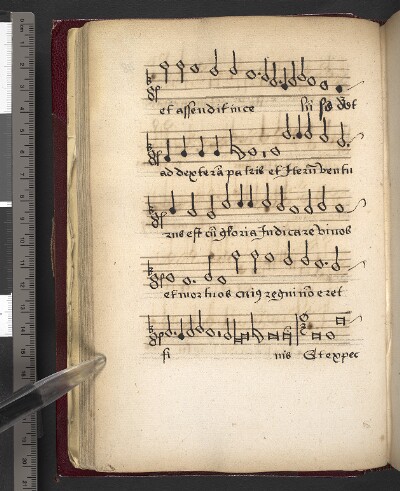 et assendit in ce lū se det
ad dexterā patris et Iterū ventu
rus est cū gloria Iudicare vivos
et mortuos cuiꝯ regni nō eret
fi nis Et expec